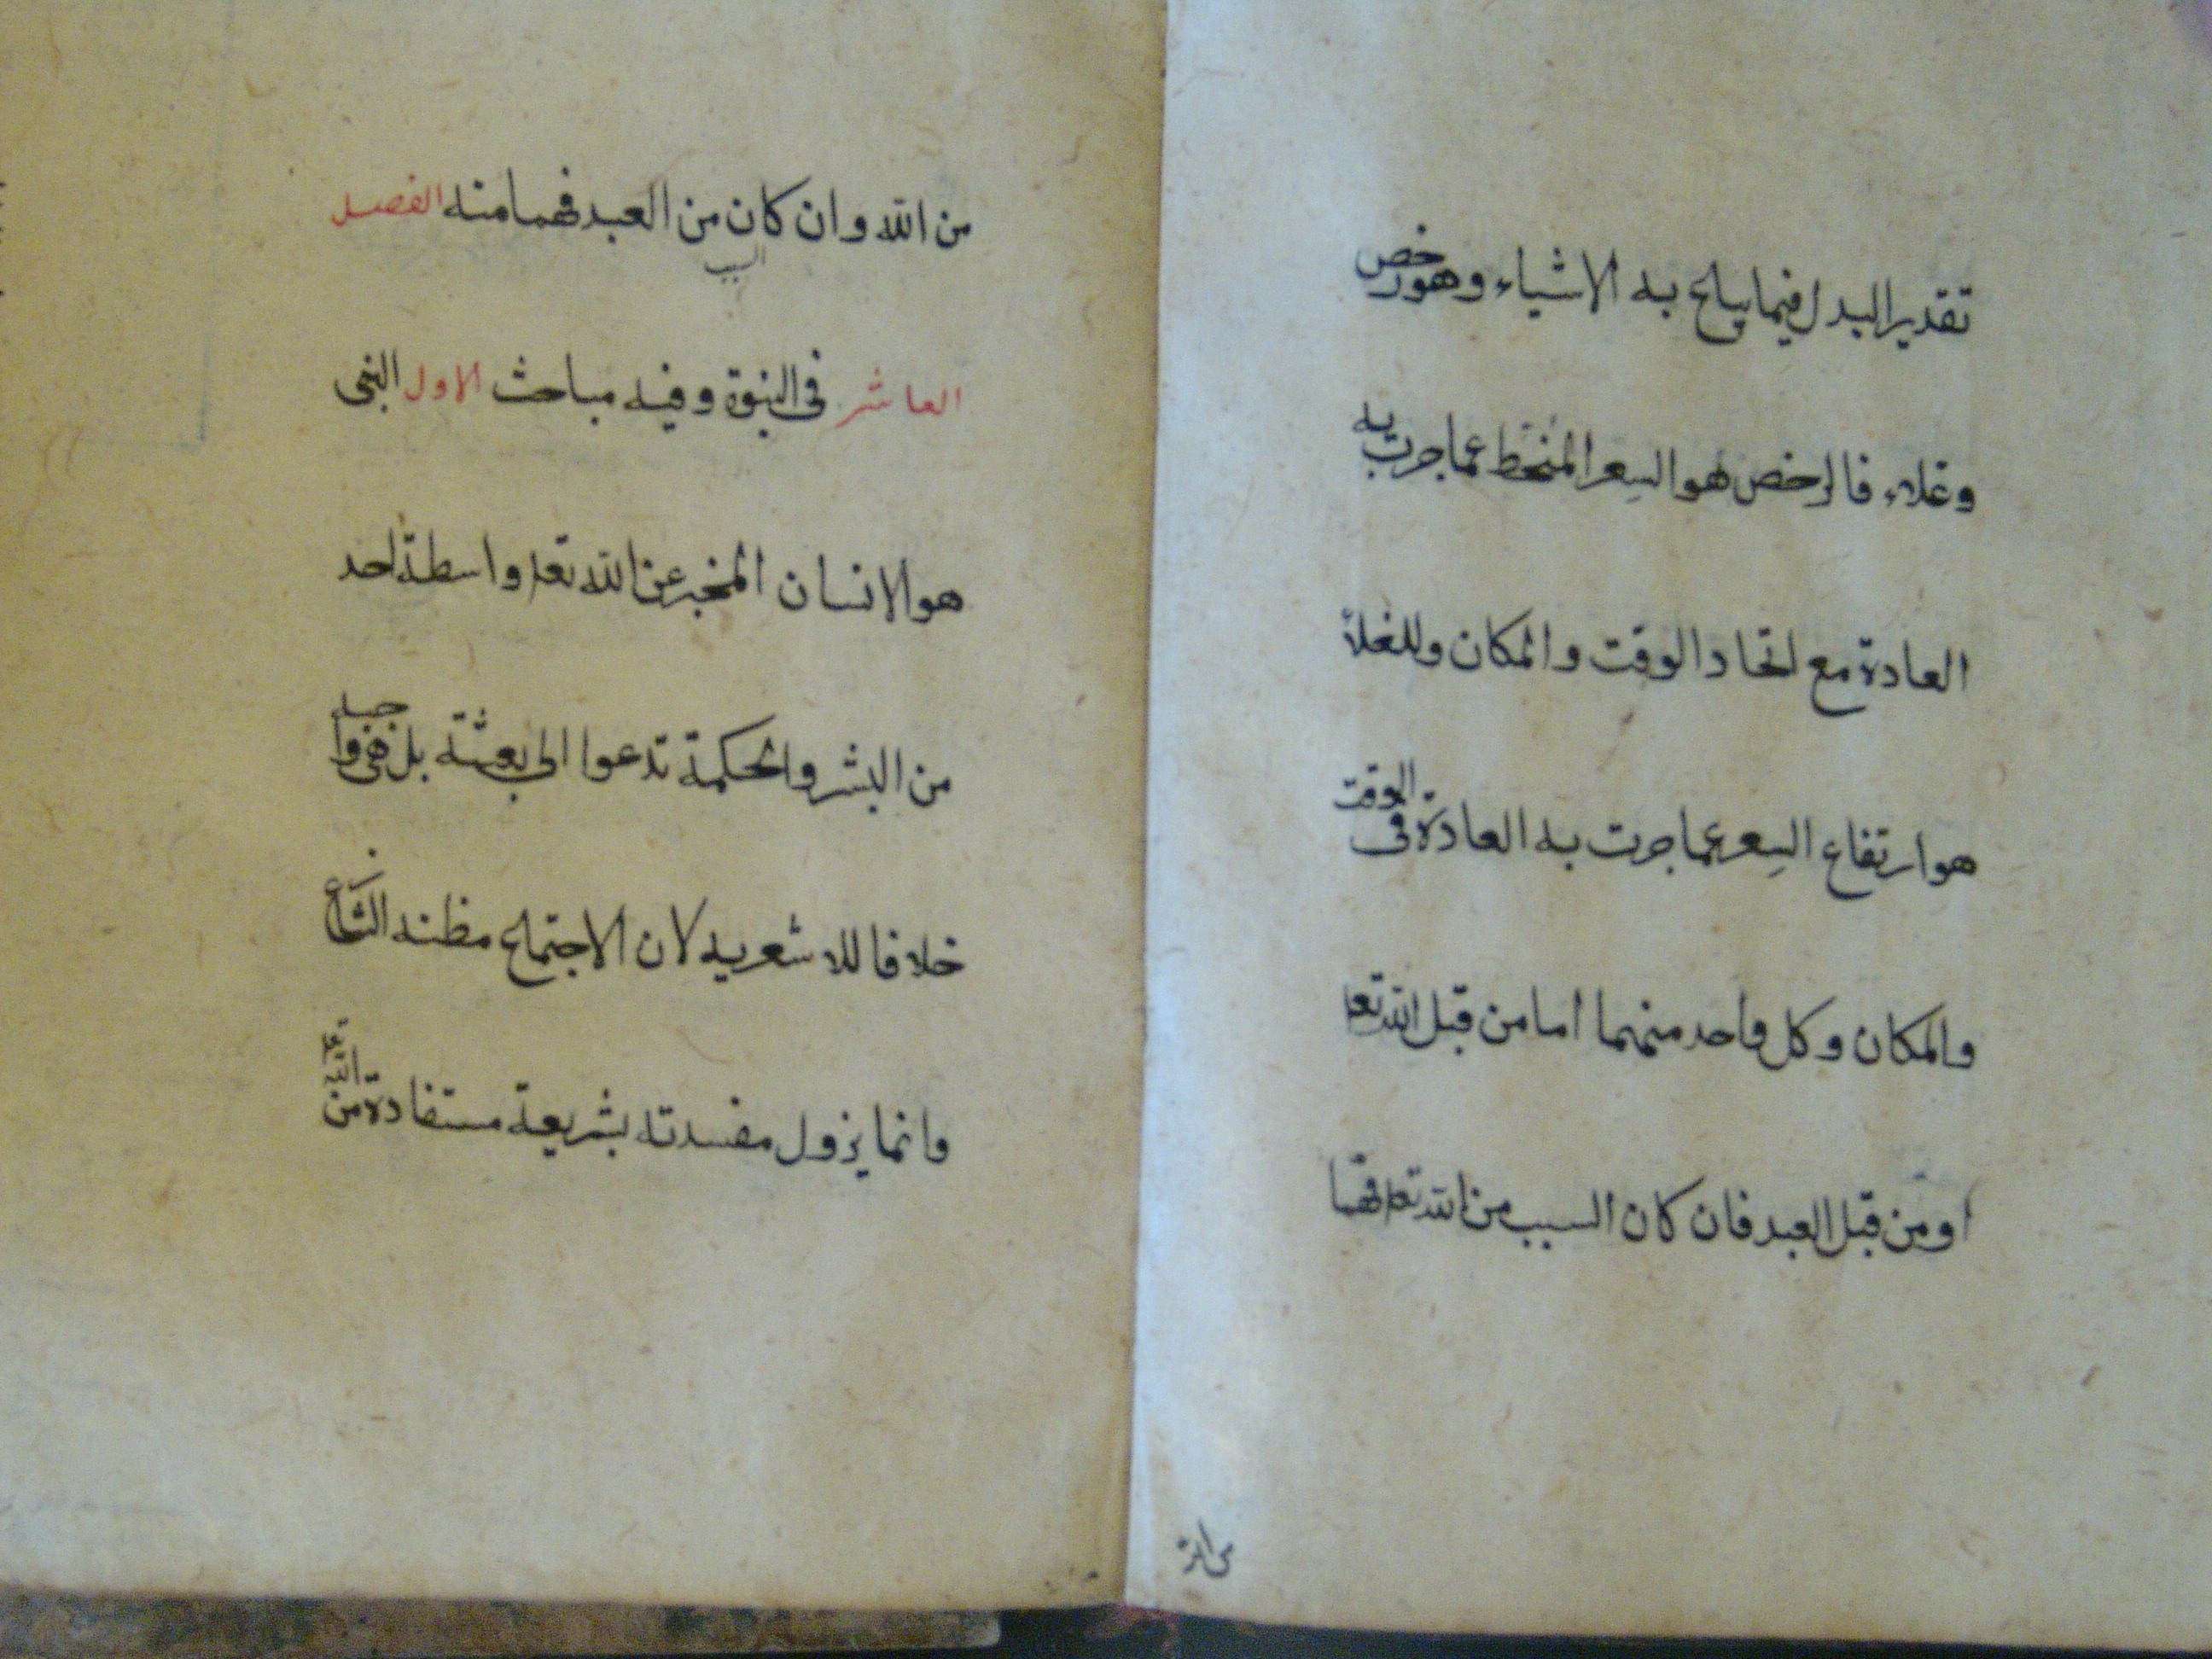 تقدير البدل فيما يباع به الاشياء وهو رخص
وغلاء فالرخص هو السعر المنحط عما جرت به
العادة مع اتحاد الوقت والمكان وللغلاء
هو ارتفاع السعر عما جرت به العادة فى الوقت
والمكان وكل واحد منهما اما من قبل الله تعا
او من قبل العبد فان كان السبب من الله تعا فهما
من الله
من الله وان كان من العبد فهما منه الفصل
السبب
العاشر فى النبوة وفيه مباحث الاول النبى
هو الانسان المخبر عن الله تعا واسطة احد
من البشر والحكمة تدعوا الى بعثة بل هى واجبه
خلافا للاشعريه لان الاجتماع مظنه التنازع
وانما يزول مفسدته بشريعة مستفادة من الله تعا